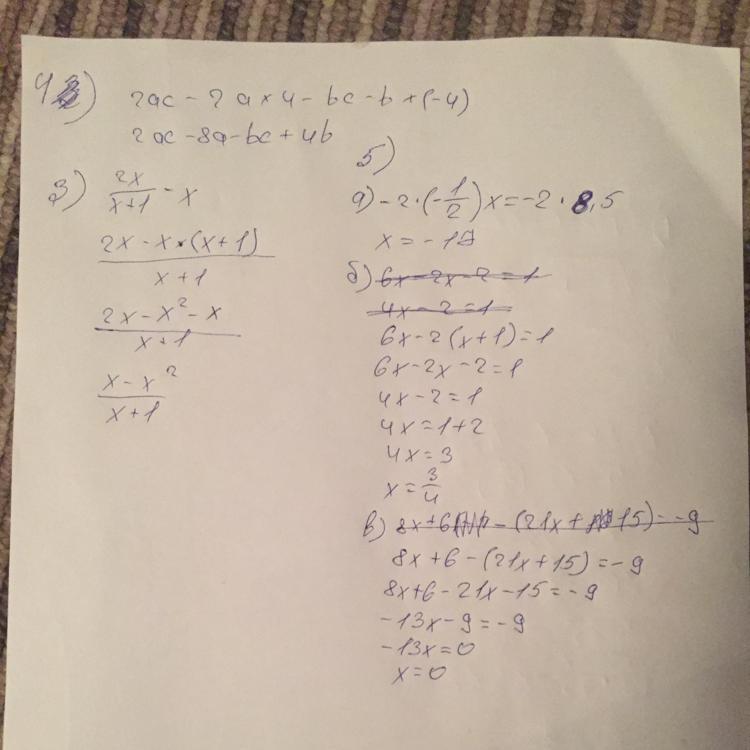 4) 2ac - 2a × 4 - bc - b × (-4)
2ac - 8a - bc + 4b
3) 2x/x+1 - x
2x - x · (x+1)/x+1
2x - x² - x/x+1
x - x²/x+1
5)
а) -2 · (-1/2)x = -2 · 8,5
x = -17
б) 6x - 2x - 2 = 1
4x - 2 = 1
6x - 2(x+1) = 1
6x - 2x - 2 = 1
4x - 2 = 1
4x = 1+2
4x = 3
x = 3/4
в) 8x + 6 - (21x + 15) = -9
8x + 6 - (21x + 15) = -9
8x + 6 - 21x - 15 = -9
-13x - 9 = -9
-13x = 0
x = 0